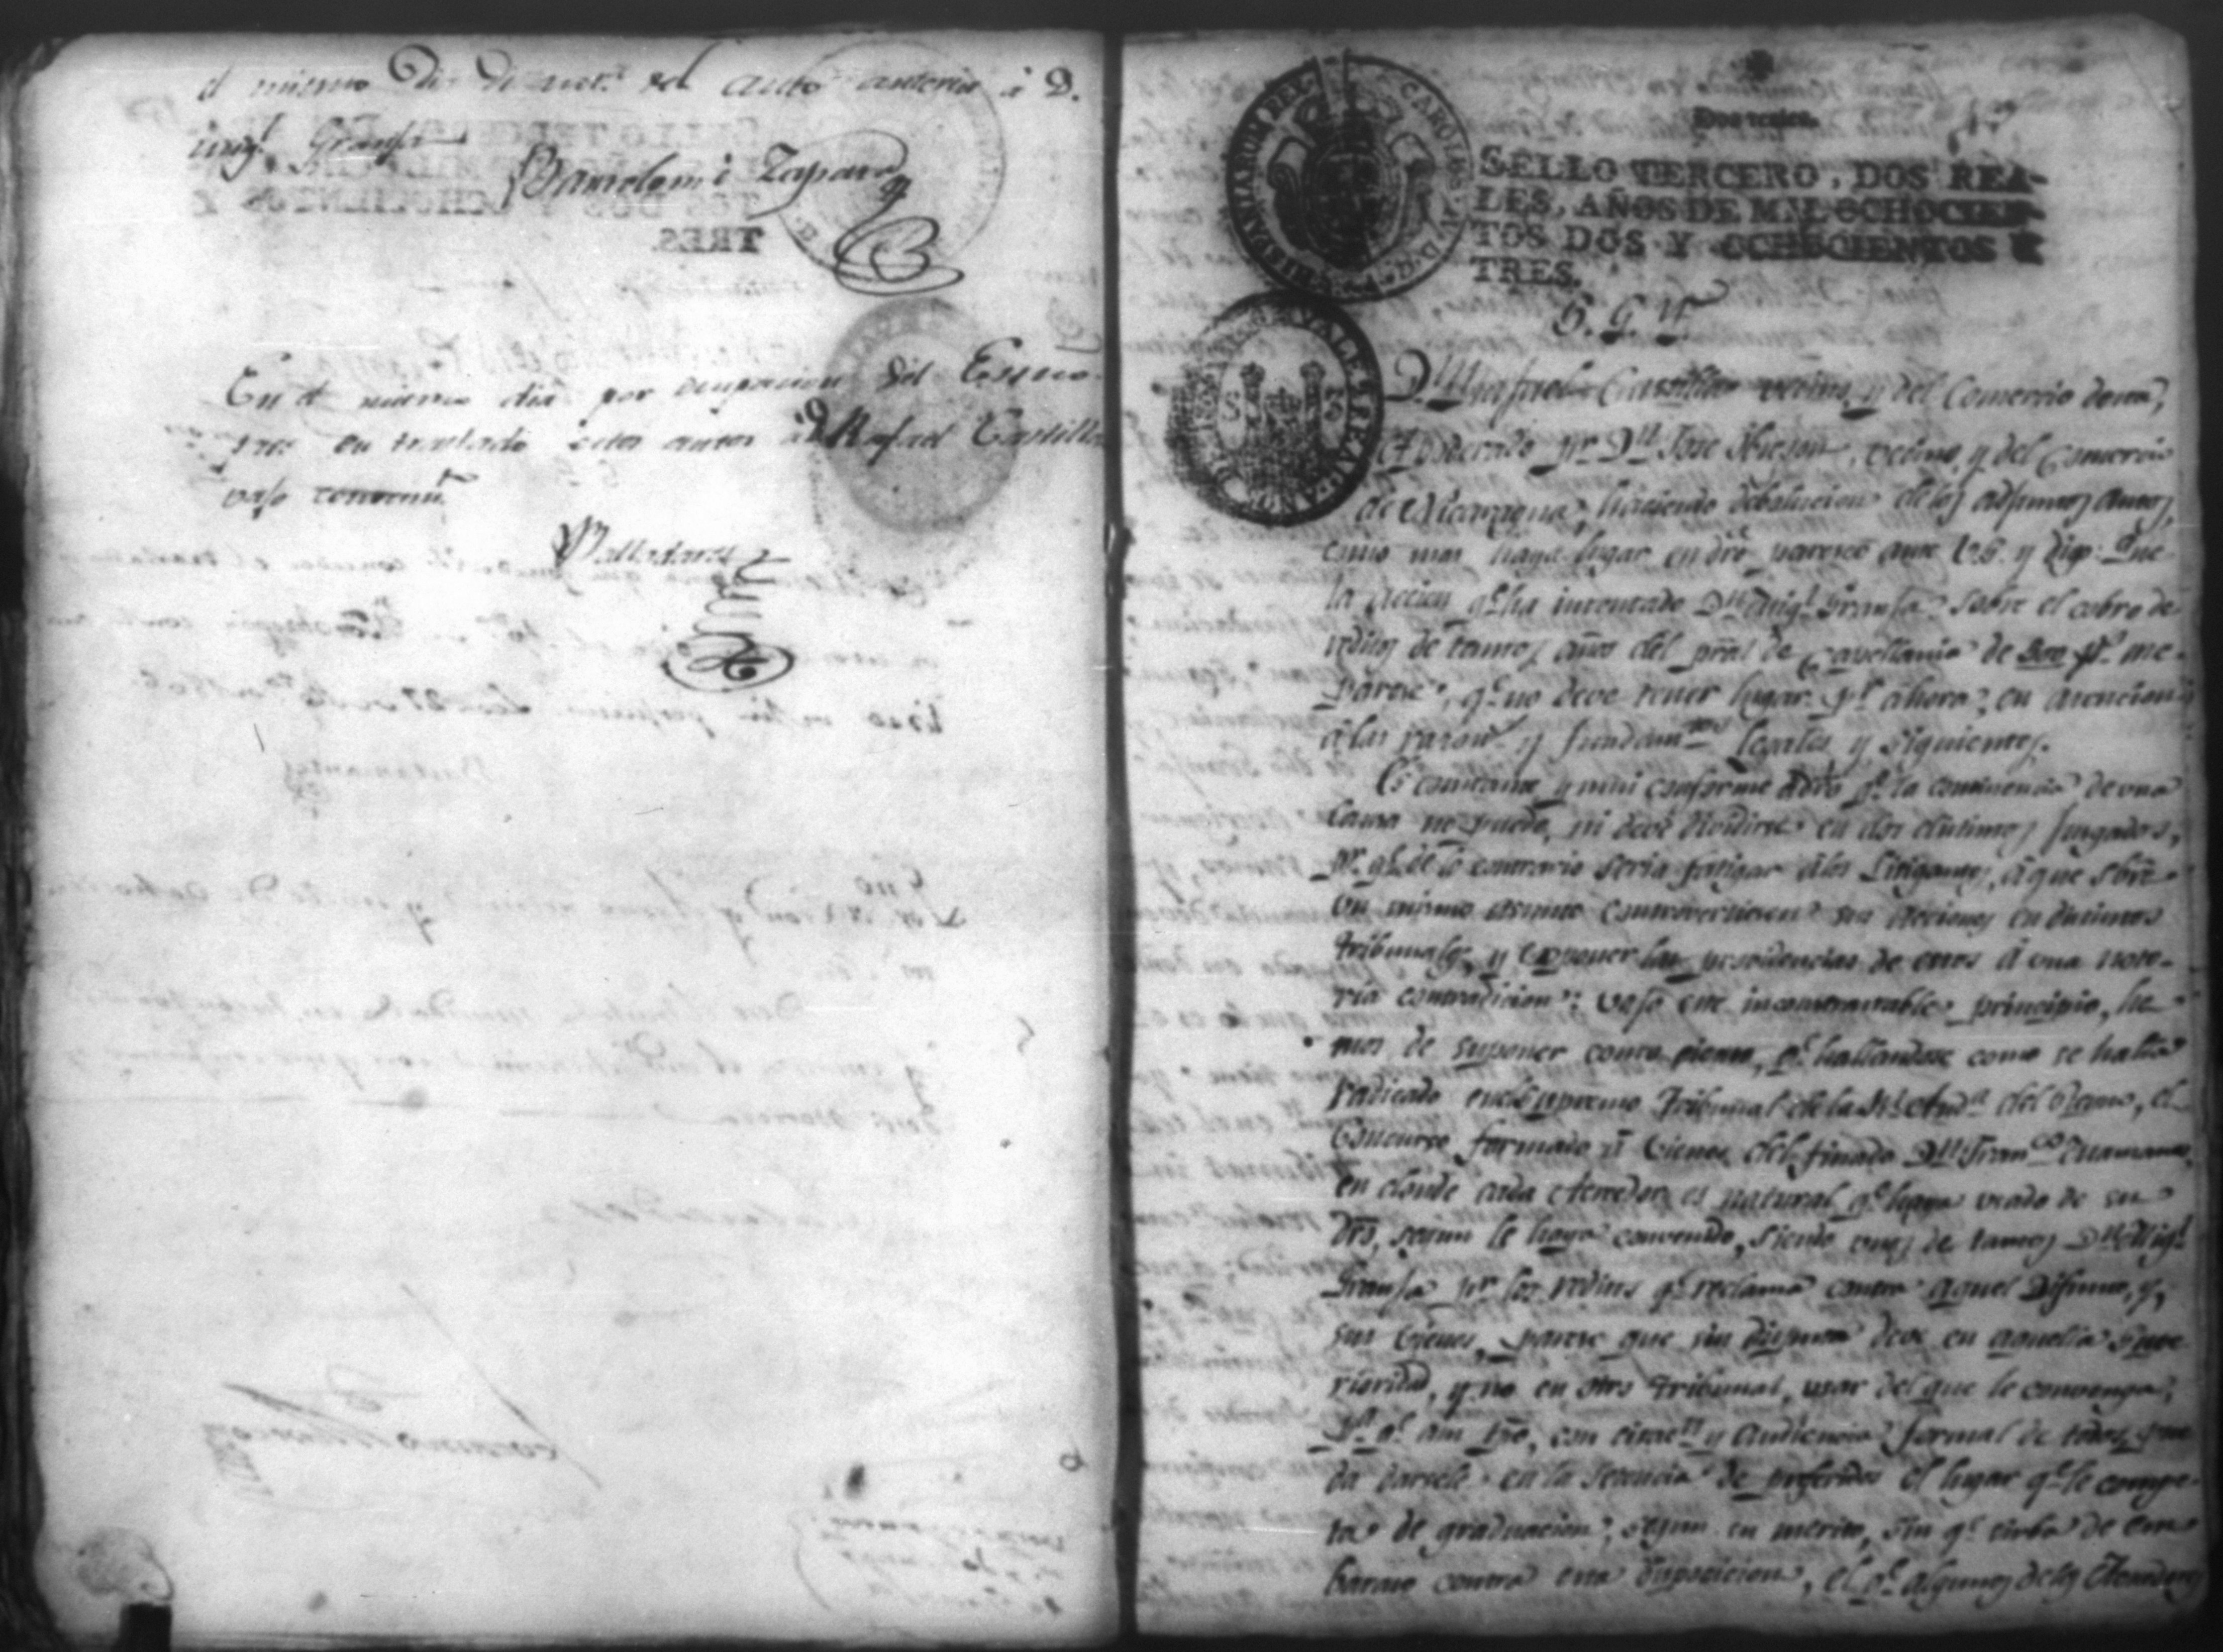 el mismo Dia de not.ⁿ del auto anterior à D.
Mig.l Granja
Bartolomé Zapara
En el mismo dia por ocupacion del Escrivo.
en traslado estos autos à D. Rafael Castillo
vajo conocim.to
Valladares
Dos reales.
SELLO TERCERO, DOS REA-
LES, AÑOS DE MIL OCHOCIEN-
TOS DOS Y OCHOCIENTOS
TRES.
D.n Rafael Castillo vecino, y del Comercio de
Apoderado p.r D.n Jose vecino, y del Comercio
de Nicaragua, haciendo debolucion de los adjuntos autos,
como mas haya lugar en dro parezco ante V.S. y digo: Que
la accion q.e ha intentado D.n Mig.l Granja sobre el cobro de
reditos de tantos años del pral de Capellania de p.s me
parece, q.e no deve tener lugar p.r ahora, en atencion
à las razon.s y fundam.tos legales, y siguientes.
Es constante, y mui conforme à dro q.e la continencia de una
Causa no puede, ni deve dividirse en dos distintos Juzgados,
p.r q.e de lo contrario seria fatigar à los Litigantes, à que sobre
un mismo asunto controvertiesen sus acciones en distintos
tribunales, y exponer las providencias de estos à una noto-
ria contradicion: vajo este incontrastable principio, he-
mos de suponer como cierto, q.e hallandose como se halla
radicado en el Supremo Tribunal de la R.l Aud.a del Reino, el
Concurso formado à vienes del finado D.n Fran.co
en donde cada Acredor es natural q.e haya usado de su
dro, segun le haya convenido, siendo uno de tantos D.n Mig.l
Granja p.r los reditos q.e reclama contra aquel Difunto, y
sus vienes, parece que sin disputa deve en aquella Supe-
rioridad, y no en otro Tribunal, usar del que le convenga,
p.a q.e con citac.n y Audiencia formal de todos, pue-
da darsele en la Sentencia de preferidos el lugar q.e le compe-
ta de graduacion, segun su merito, sin q.e sirba de em-
barazo contra esta disposicion, el q.e algunos de los Acredores